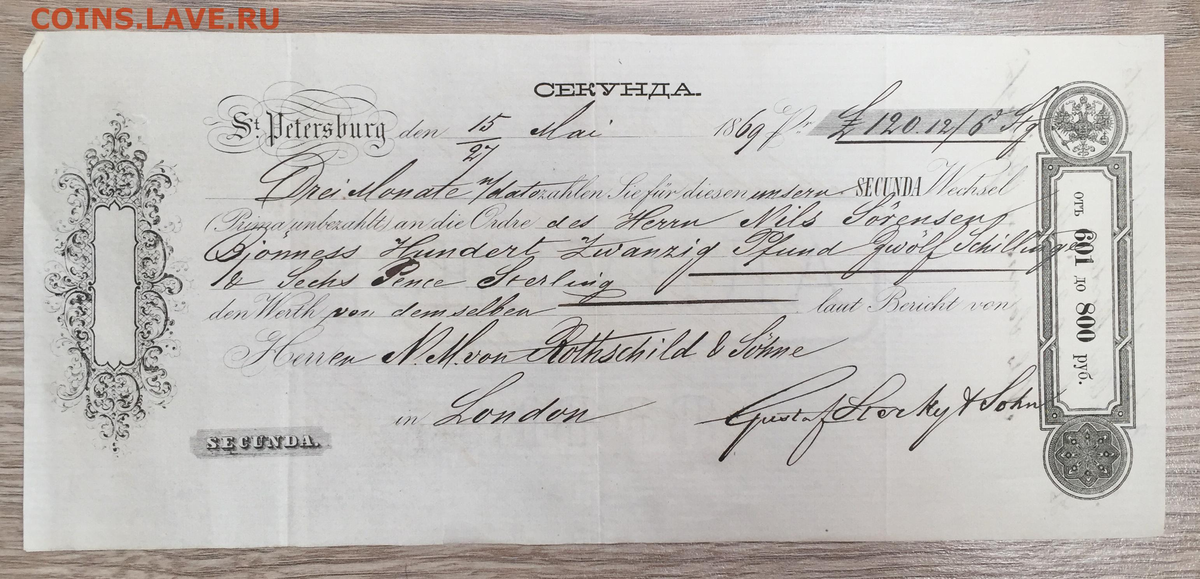 COINS.LAVE.RU
СЕКУНДА.
St. Petersburg den 15/27 Mai 1869 Pr. £ 120.12/6d Stg
Drei Monate n/dato zahlen Sie für diesen unsern SECUNDA Wechsel
(Prima unbezahlt) an die Ordre des Herrn Nils Sörensen
Bjonness Hundert Zwanzig Pfund Zwölf Schillinge
& Sechs Pence Sterling
den Werth von demselben laut Bericht von
Herren N. M. von Rothschild & Söhne
in London
Gustaf Sterky & Sohn
SECUNDA.
отъ 601 до 800 руб.